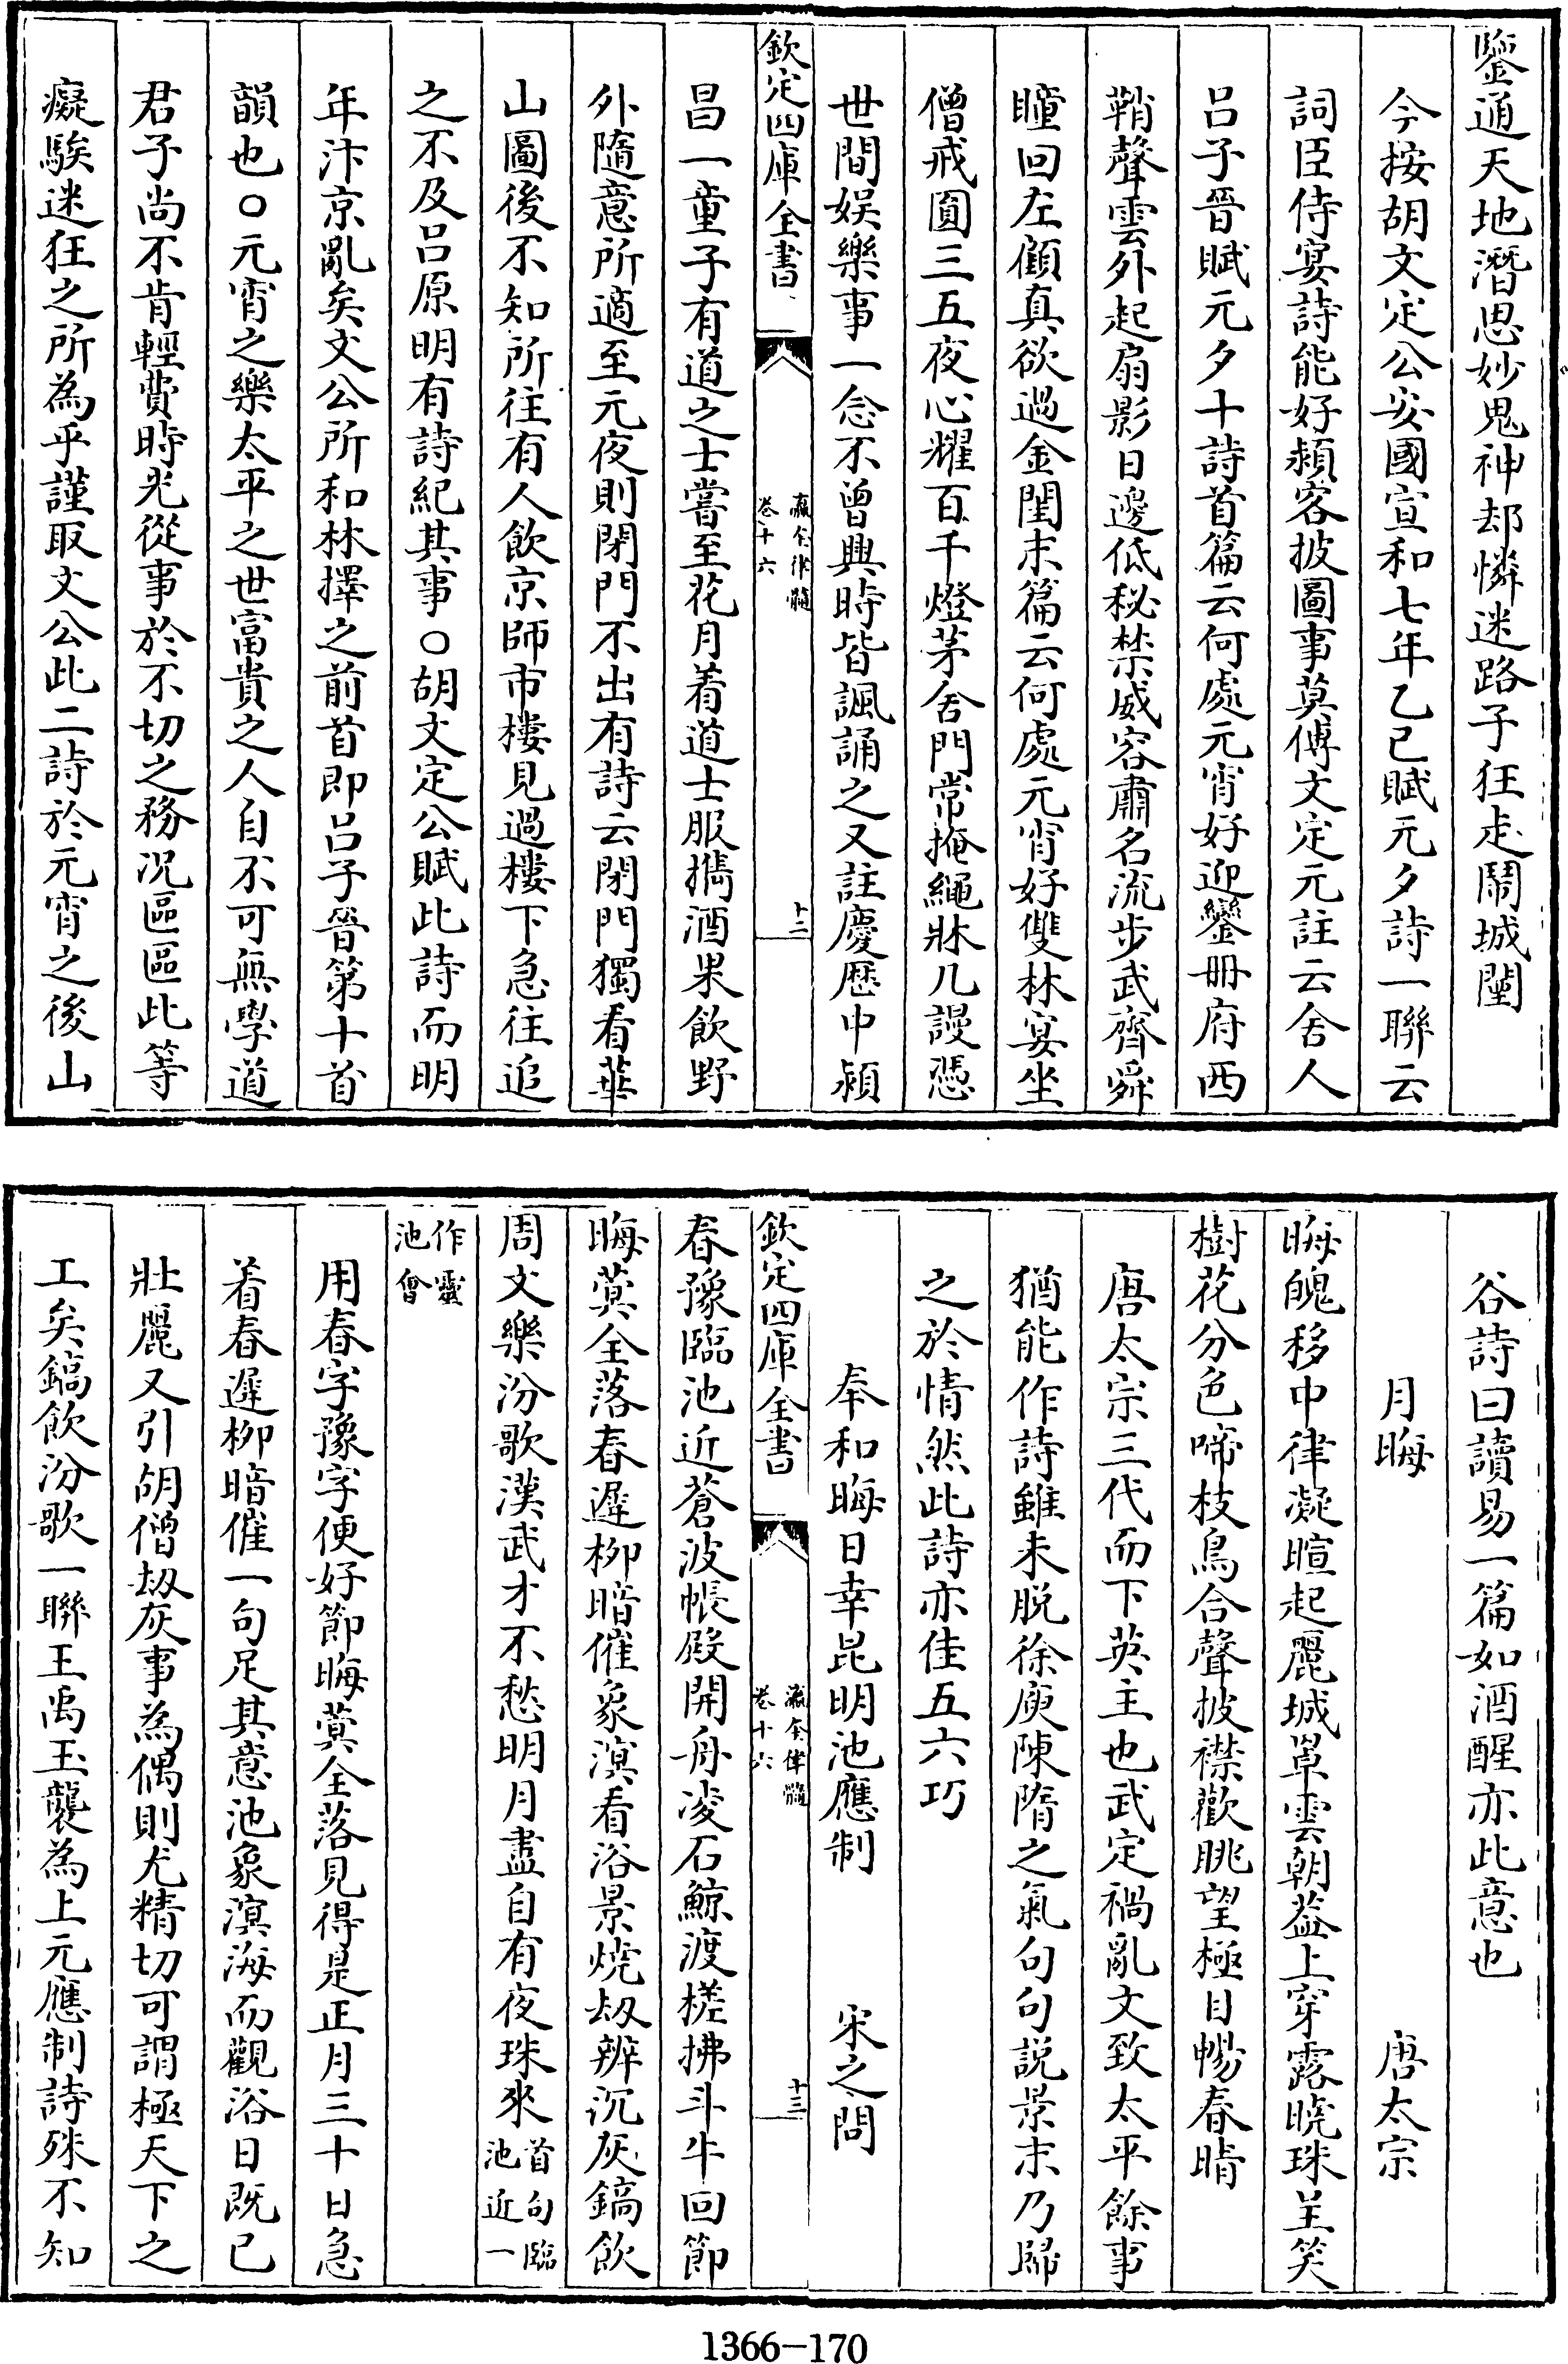 鑒通天地潛思妙鬼神却憐迷路子狂走鬧城闉
今按胡文定公安國宣和七年乙巳賦元夕詩一聯云
詞臣侍宴詩能好頼客披圖事莫傅文定元註云舍人
呂子晉賦元夕十詩首篇云何處元宵好迎鑾冊府西
鞘聲雲外起扇影日邊低秘禁威容肅名流步武齊舜
瞳回左顧真欲過金閨末篇云何處元宵好雙林宴坐
僧戒圓三五夜心耀百千燈茅舍門常掩繩牀几謾憑
世間娱樂事一念不曾興時皆諷誦之又註慶歴中潁
欽定四庫全書
瀛奎律髓
卷十六
十二
昌一童子有道之士嘗至花月着道士服携酒果飲野
外隨意所適至元夜則閉門不出有詩云閉門獨看華
山圖後不知所往有人飲京師市樓見過樓下急往追
之不及呂原明有詩紀其事○胡文定公賦此詩而明
年汴京亂矣文公所和林擇之前首即呂子晉第十首
韻也○元宵之樂太平之世富貴之人自不可無學道
君子尚不肯輕費時光從事於不切之務况區區此等
癡騃迷狂之所為乎謹取文公此二詩於元宵之後山
谷詩曰讀易一篇如酒醒亦此意也
月晦
唐太宗
晦魄移中律凝暄起麗城罩雲朝葢上穿露曉珠呈笑
樹花分色啼枝鳥合聲披襟歡眺望極目暢春晴
唐太宗三代而下英主也武定禍亂文致太平餘事
猶能作詩雖未脱徐庾陳隋之氣句句説景末乃歸
之於情然此詩亦佳五六巧
奉和晦日幸昆明池應制
宋之問
欽定四庫全書
瀛奎律髓
卷十六
十三
春豫臨池近蒼波帳殿開舟凌石鯨渡槎拂斗牛回節
晦蓂全落春遲柳暗催象溟看浴景燒刼辨沉灰鎬飲
周文樂汾歌漢武才不愁明月盡自有夜珠來
首句臨
池近一
作靈
池會
用春字豫字便好節晦蓂全落見得是正月三十日急
着春遲柳暗催一句足其意池象溟海而觀浴日既已
壯麗又引胡僧刼灰事為偶則尤精切可謂極天下之
工矣鎬飲汾歌一聯王禹玉襲為上元應制詩殊不知
1366-170